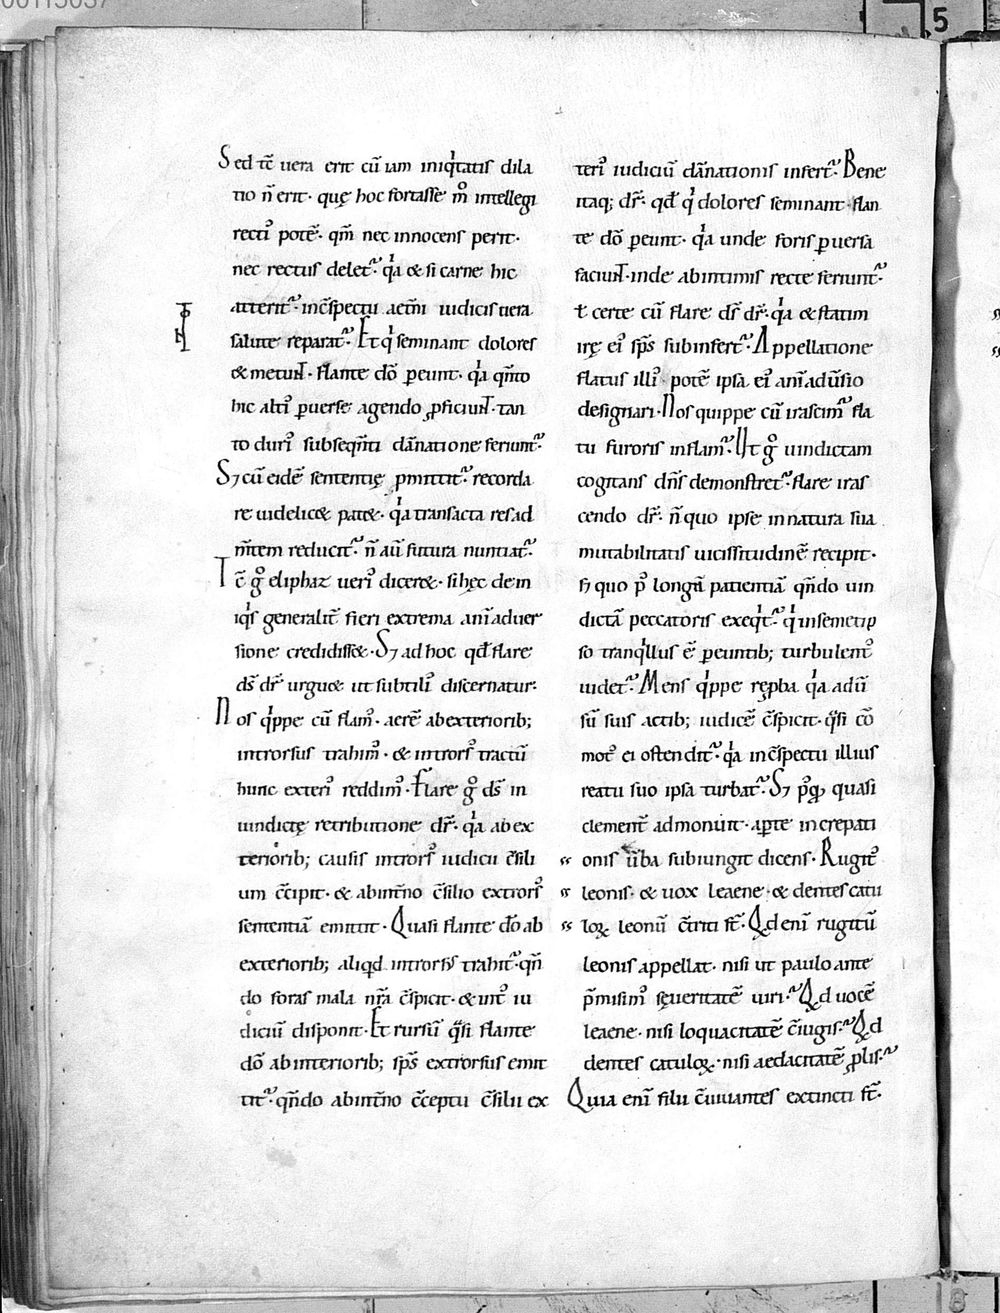 00115037
5
Sed tc̄ uera erit cū iam iniq͛tatis dila
tio n̄ erit· quę hoc fortasse m̊ intellegi
recti᷒ potē· qm̄ nec innocens perit·
nec rectus delet᷑· q͛a & si carne hic
atterit᷑· inc̄spectu aet̄ni iudicis uera
salute reparat᷑· Et q͛ seminant dolores
& metunt· flante dō ꝑeunt· q͛a qn̄to
hic alti᷒ ꝑuerse agendo ꝓficiunt· tan
to duri᷒ subseqn̄ti dānatione feriunt᷑·
S; cū eidē sententię p̄mittit᷑· recorda
re uidelic& pat&· q͛a transacta res ad
m̄tem reducit᷑· n̄ aū futura nuntiat᷑·
Tc̄ g̊ eliphaz ueri᷒ dicer&· si hęc de in
iq͛s generalit̄ fieri extrema aniāduer
sione credidiss&· S; ad hoc qđ flare
ds̄ dr̄ urgu& ut subtili᷒ discernatur·
Nos q͛ppe cū flam᷒· aerē abexteriorib;
introrsus trahim᷒· & intrors᷒ tractū
hunc exteri᷒ reddim᷒· Flare g̊ ds̄ in
uindictę retributione dr̄· q͛a ab ex
teriorib; causis intrors᷒ iudicii c̄sili
um c̄cipit· & abint̄no c̄silio extrors᷒
sententiā emittit· Quasi flante dō ab
exteriorib; aliqd introrsus trahit᷑· qn̄
do foras mala nr̄a c̄spicit· & int᷒ iu
diciū disponit· Et rursū q̄si flante
dō ab interiorib; sp̄s extrorsus emit
tit᷑· qn̄do abint̄no c̄ceptu c̄silii ex
teri᷒ iudiciū dānationis infert᷑· Bene
itaq; dr̄· qđ q͛ dolores seminant flan
te dō ꝑeunt· q͛a unde foris ꝑuersa
faciunt· inde abintimis recte feriunt᷑·
ł certe cū flare ds̄ dr̄· q͛a & statim
irę ei᷒ sp̄s subinfert᷑· Appellatione
flatus illi᷒ potē ipsa ei᷒ aniāduersio
designari· Nos quippe cū irascim᷑ fla
tu furoris inflam᷑· Ut g̊ uindictam
cogitans dn̄s demonstret᷑· flare iras
cendo dr̄· n̄ quo ipse innatura sua
mutabilitatis uicissitudinē recipit·
s; quo p᷒ longā patientiā qn̄do uin
dictā peccatoris exeq͛t᷑· q͛ insemetip
so tranq͛llus ē ꝑeuntib; turbulent᷒
uidet᷑· Mens q͛ppe rep̱ba q͛a adū
sū suis actib; iudicē c̄spicit· q̄si cō
mot᷒ ei ostendit᷑· q͛a inc̄spectu illius
reatu suo ipsa turbat᷑· S; p᷒q̄ quasi
clement̄ admonuit· aꝑte increpati
onis ūba subiungit dicens· Rugit᷒
leonis· & uox leaene· & dentes catu
loꝝ leonū c̄triti st̄· Qd enī rugitū
leonis appellat· nisi ut paulo ante
p̄misim᷒ seueritatē uiri·᷑ Qd uocē
leaene· nisi loquacitatē c̄iugis·᷑ Qd
dentes catuloꝝ· nisi aedacitatē ꝓlis·᷑
Quia enī filii c̄uiuantes extincti st̄·